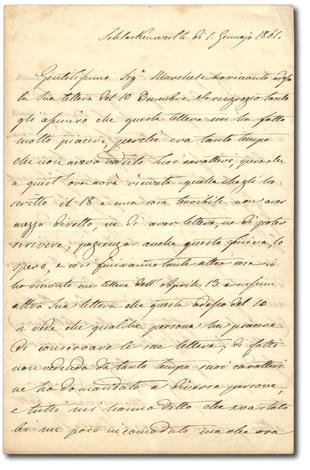 Schlackenwerth li 1. Gennajo 1861.
Gentilissimo Sig.r Marchese ho ricevuto adesso
la sua lettera del 10 Decembre la ringrazio tanto
gli assicuro che questa lettera mi ha fatto
molto piacere perchè era tanto tempo
che non avevo veduto suoi caratteri, spero che a
quest'ora avrà ricevuta quella che gli ho
scritto il 18 è una cosa terribile non aver
mezzo diretto, nè di aver lettere, nè di poter
scrivere; pazienza anche questo finirà, lo
spero, e così finiranno tante altre cose io
ho ricevuto una lettera dell' Aprile 13 e nessuna
altra sua lettera che questa adesso del 10
si vede che qualche persona ha piacere
di conservare le sue lettere; di fatti
non vedendo da tanto tempo suoi caratteri
ne ho domandato a diverse persone,
e tutti mi hanno detto che era stato
un poco incomodato ma che ora